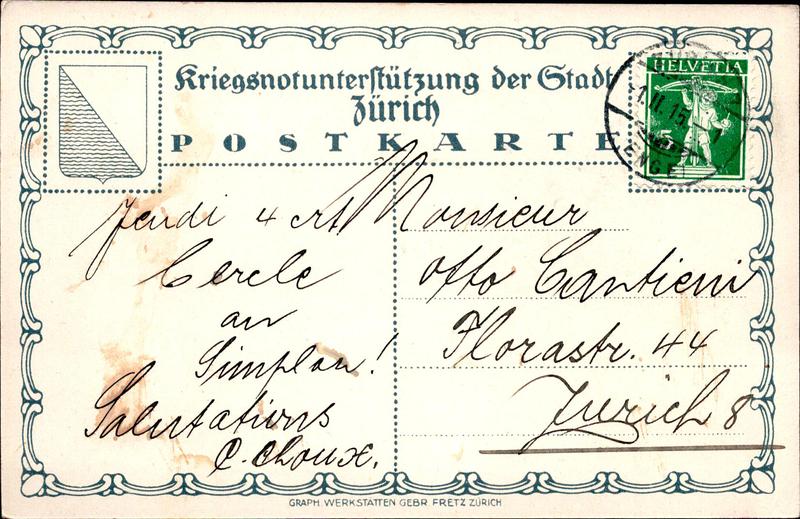 Kriegsnotunterstützung der Stadt
Zürich
POSTKARTE
HELVETIA
1.II.15
ENGE
Jeudi 4 crt
Cercle
au
Simplon!
Salutations
C. Choux.
Monsieur
Otto Cantieni
Florastr. 44
Zurich 8
GRAPH. WERKSTÄTTEN GEBR. FRETZ ZÜRICH